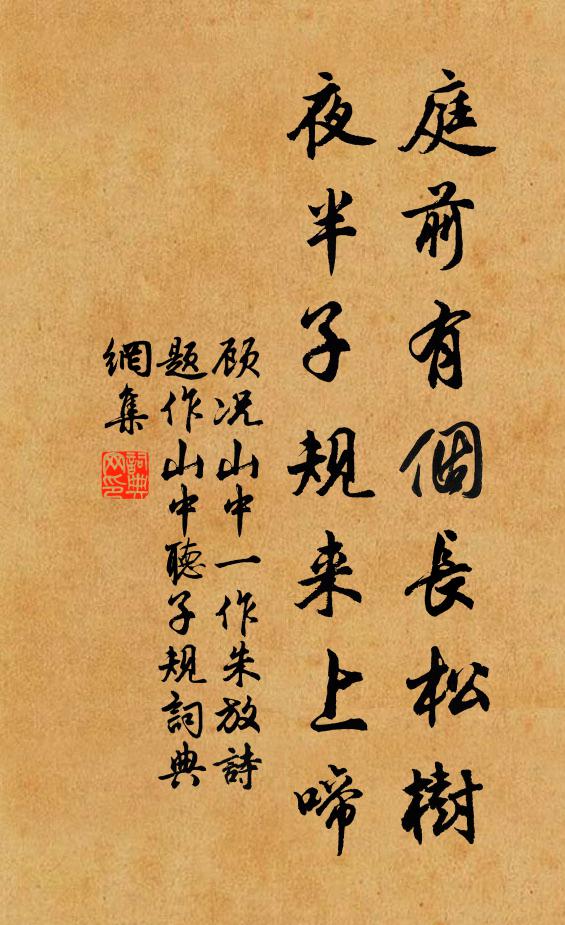 庭前有個長松樹
夜半子規来上啼
顾况山中一作朱放詩
题作山中聴子規詞典
網集
詞典
网印